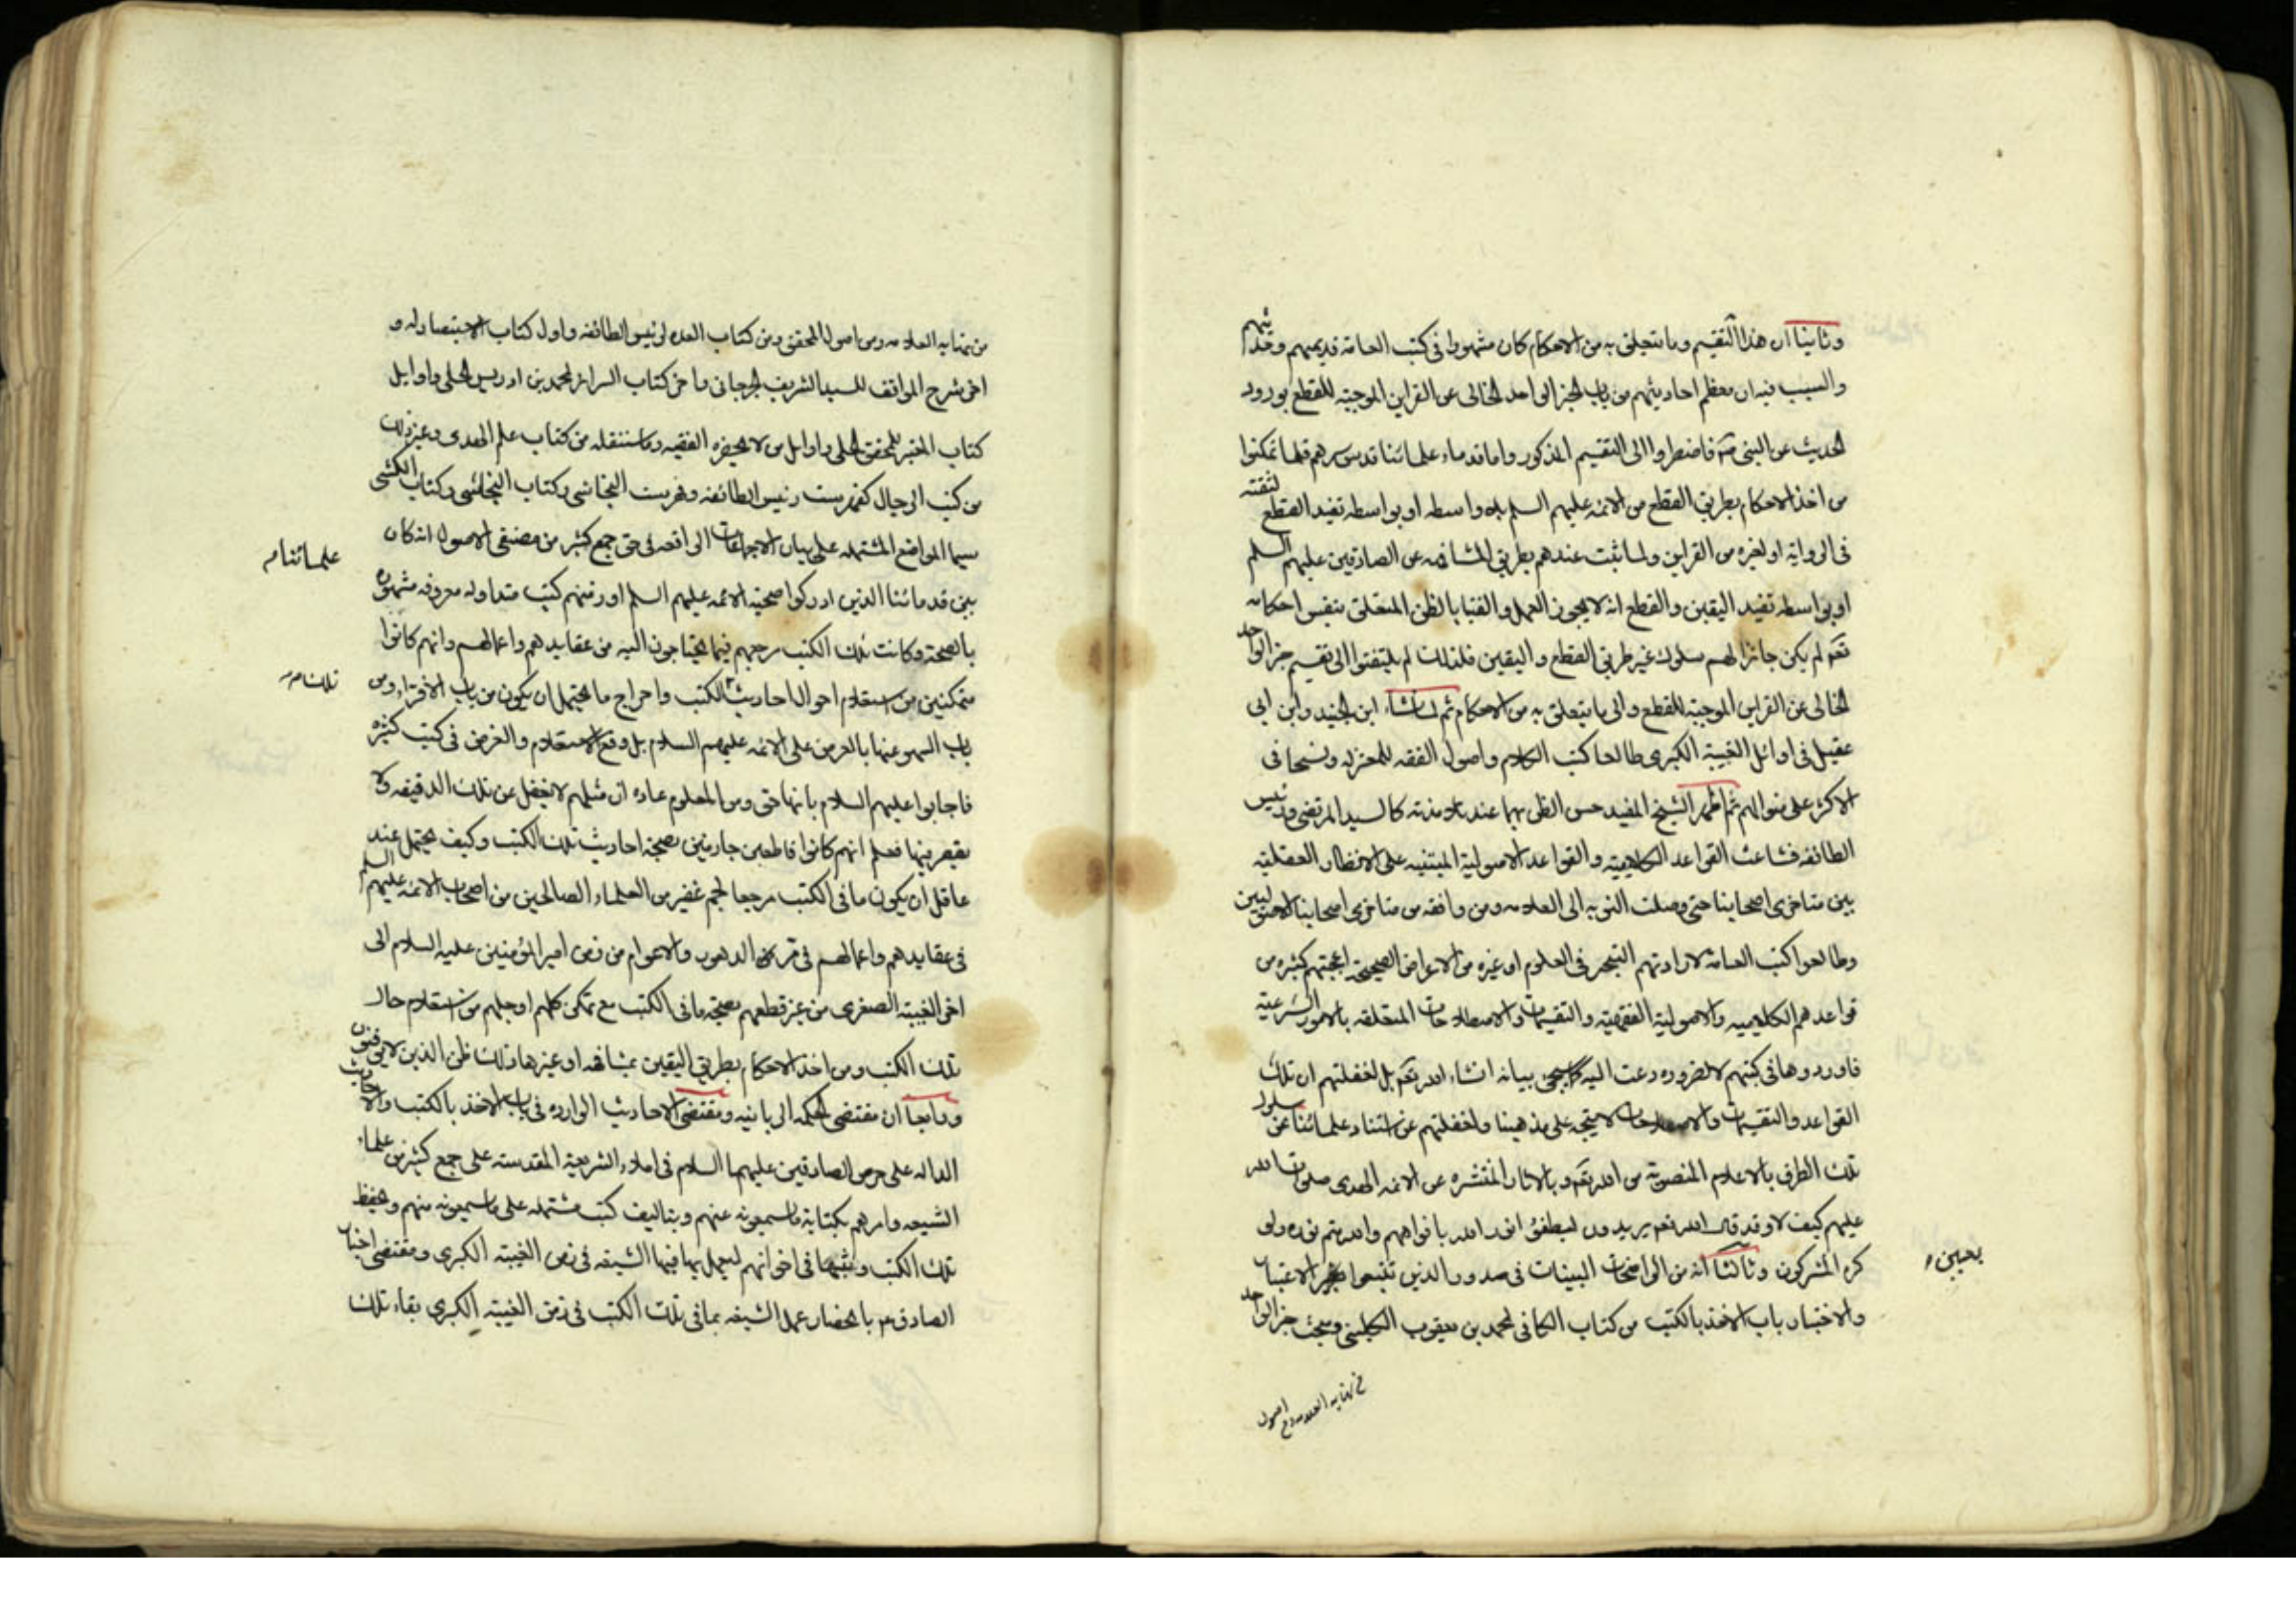 وثانيا ان هذا التقسيم وما يتعلق به من الاحكام كان مشهورا فى كتب العامة قديمهم وحديثهم
والسبب فيه ان معظم احاديثهم من باب الخبر الواحد الخالى عن القراين الموجبة للقطع بورود
الحديث عن النبى ص فاضطروا الى التقسيم المذكور واما قدماء علمائنا قدس سرهم فلما تمكنوا
من اخذ الاحكام بطريق القطع من الائمه عليهم السلم بلا واسطه او بواسطه تفيد القطع لثقته
فى الرواية او لغيره من القراين ولما ثبت عندهم بطريق المشافهه عن الصادقين عليهم السلم
او بواسطه تفيد اليقين والقطع انه لا يجوز العمل والفتيا بالظن المتعلق بنفس احكامه
تعم لم يكن جائزا لهم سلوك غير طريق القطع و اليقين فلذلك لم يلتفتوا الى تقسيم خبر الواحد
الخالى عن القراين الموجبة للقطع و الى ما يتعلق به من الاحكام ثم لما نشاء ابن الجنيد وابن ابى
عقيل فى اوائل الغيبة الكبرى طالعا كتب الكلام و اصول الفقه للمعتزله ونسجا فى
الاكثر على منوالهم ثم اظهر الشيخ المفيد حسن الظن بهما عند تلامذته كالسيد المرتضى ورئيس
الطائفه فشاعت القواعد الكلامية و القواعد الاصولية المبتنيه على الانظار العقلية
بين متاخرى اصحابنا حتى وصلت النوبه الى العلامه ومن وافقه من متاخرى اصحابنا الاصوليين
وطالعوا كتب العامة لارادتهم التبحر فى العلوم او غيره من الاغراض الصحيحة اعجبتهم كثيره من
قواعدهم الكلاميه والاصولية الفقهية والتقسيمات والاصطلاحات المتعلقه بالامور الشرعية
فاوردوها فى كتبهم لا لضروره دعت اليه كما سيجئ بيانه انشاء الله تعم بل لغفلتهم ان تلك
القواعد والتقسيمات والاصطلاحات لا يتجه على مذهبنا ولغفلتهم عن استناد علمائنا عن سلوك
تلك الطرق بالاعلام المنصوبة من الله تعم و بالاثار المنتشره عن الائمه الهدى صلوت الله
عليهم كيف لا وقد قال الله تعم يريدون ليطفئوا نور الله بافواههم والله متم نوره ولو
كره المشركون وثالثا انه من الواضحات البينات فى صدور الذين تتبعوا الاعتبار
بعين
والاختبار باب الاخذ بالكتب من كتاب الكافى لمحمد بن يعقوب الكلينى ومبحث خبر الواحد
من نهايه العلامه ومن اصول
من نهايه العلامه ومن اصول المحقق ومن كتاب العده لرئيس الطائفه واول كتاب الاستبصار له و
اخر شرح المواقف للسيد الشريف الجرجانى واخر كتاب السرائر لمحمد بن ادريس الحلى واوايل
كتاب المعتبر للمحقق الحلى واوايل من لا يحضره الفقيه وما سننقله من كتاب علم الهدى وغير ذلك
من كتب الرجال كفهرست رئيس الطائفه وفهرست النجاشى وكتاب النجاشى وكتاب الكشى
سيما المواضع المشتمله على بيان الاجماعات الواقعه فى حق جمع كثير من مصنفى الاصول انه كان
علمائنا
بين قدمائنا الذين ادركوا صحبة الائمه عليهم السلم او زمنهم كتب متداوله معروفه مشهوره
بالصحة وكانت تلك الكتب مرجعهم فيما يحتاجون اليه من عقايدهم واعمالهم وانهم كانوا
متمكنين من استعلام احوال احاديث الكتب واخراج ما يحتمل ان يكون من باب الافتراء ومن
تلك
باب السهو عنها بالعرض على الائمه عليهم السلام بل وقع الاستعلام والعرض فى كتب كثيره
فاجابوا عليهم السلام بانها حق ومن المعلوم عاده ان مثلهم لا يغفل عن تلك الدقيقه ولا
يقصر فيها فعلم انهم كانوا قاطعين جازمين بصحة احاديث تلك الكتب وكيف يحتمل عند
عاقل ان يكون ما فى الكتب مرجعا لجم غفير من العلماء الصالحين من اصحاب الائمه عليهم السلم
فى عقايدهم واعمالهم فى الدهور والاعوام من زمن امير المؤمنين عليه السلام الى
اخر الغيبة الصغرى من غير قطعهم بصحة ما فى الكتب مع تمكن كلهم او جلهم من استعلام حال
تلك الكتب ومن اخذ الاحكام بطريق اليقين بمشافهه او غيرها وذلك ظن الذين لا يوقنون
ورابعا ان مقتضى الحكمه الربانيه ومقتضى الاحاديث الوارده فى باب الاخذ بالكتب والاحاديث
الداله على حرص الصادقين عليهما السلام فى املاء الشريعة المقدسة على جمع كثير من علماء
الشيعه وامرهم بكتابة ما يسمعونه عنهم وبتاليف كتب مشتمله على ما سمعونه منهم وحفظ
تلك الكتب وبثها فى اخوانهم ليعمل بها فيها الشيعه فى زمن الغيبة الكبرى ومقتضى اخبار
الصادق ع بانحصار عمل الشيعه بما فى تلك الكتب فى زمن الغيبة الكبرى بقاء تلك